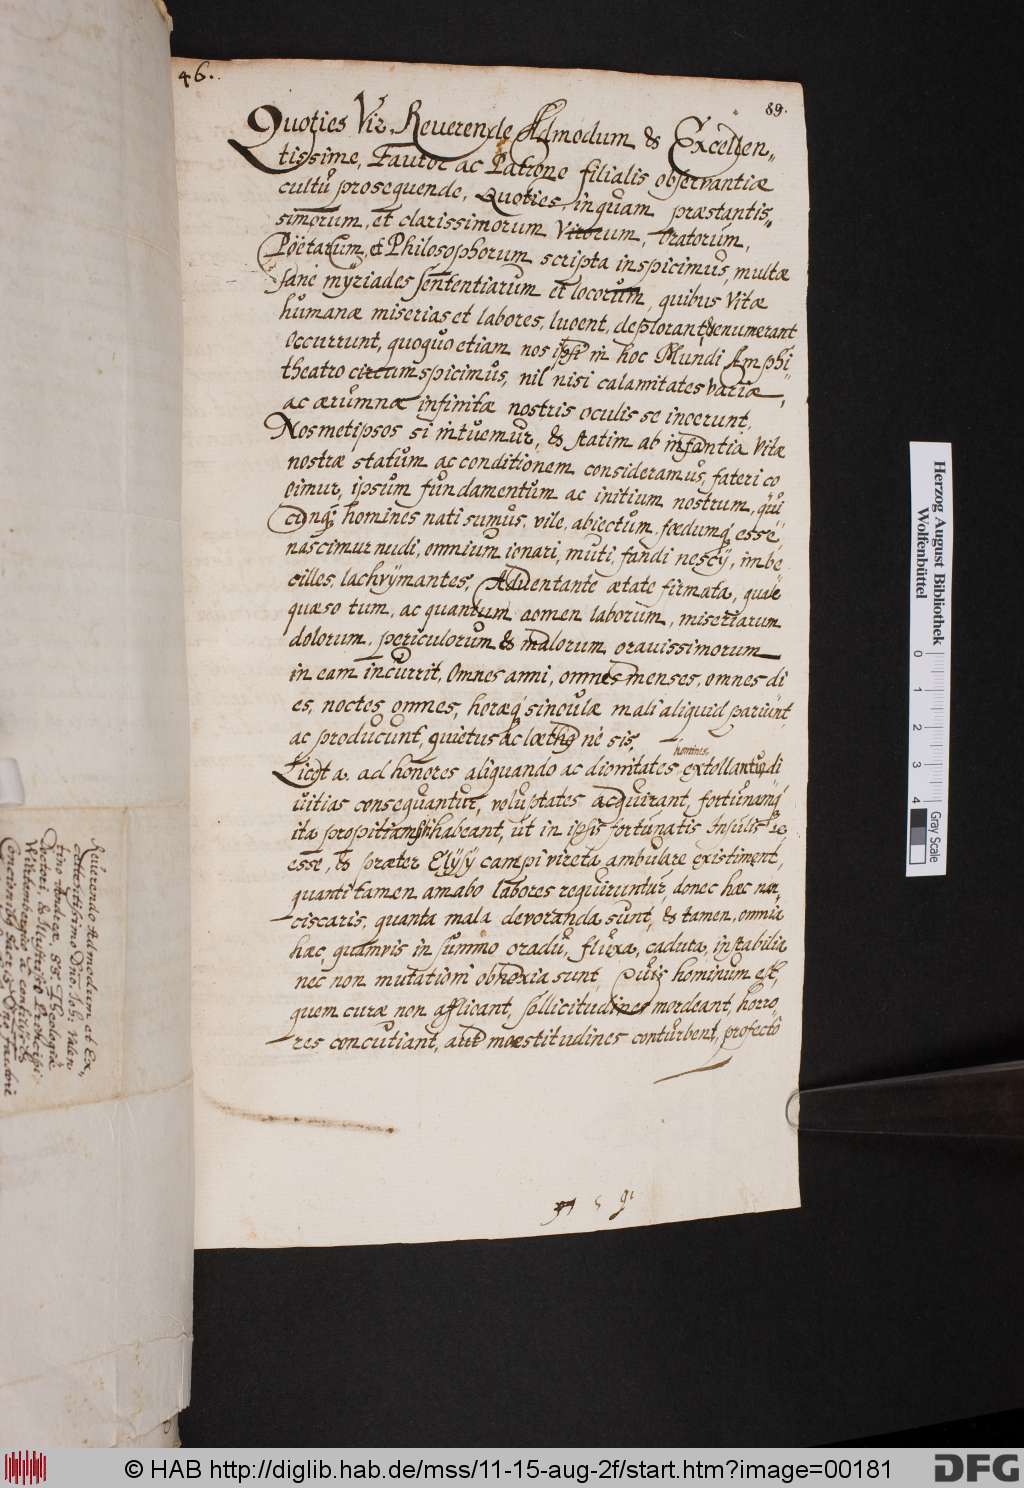 46.
89.
Quoties Vir Reverende Admodum & Excellen„
tissime, Fautor ac Patrone filialis observantiæ
cultů prosequende, Quoties, inquam præstantis„
simorum, et clarissimorum Virorum, Oratorům,
Pöétarum, & Philosophorum scripta inspicimůs, multæ
sanè mÿriades sententiarum et locorům, quibus Vitæ
hůmanæ miserias et labores, lugent, deplorant, & enumerant
occurrunt, quoquo etiam nos ipsi in hoc Mundi Amphi„
theatro circumspicimůs, nil nisi calamitates variæ,
ac ærůmnæ infinitæ nostris oculis se ingerunt,
Nosmetipsos si intůemůr, & statim ab infantia vitæ
nostræ statům ac conditionem consideramůs, fateri co
gimur, ipsům fůndamentům ac initium nostrum, qůi
cunq; homines nati sumůs, vile, abiectům, fœdumq; esse,
nascimur nudi, omnium ignari, můti, fandi nescÿ, imbe
cilles, lachrÿmantes, Adventante ætate firmata, qůale
quæso tum, ac quantum agmen laborům, miseriarum
dolorum, periculorům & malorum gravissimorum
in eam incůrrit, Omnes anni, omnes menses, omnes di
es, noctes omnes, horæq; singůlæ mali aliquid pariůnt,
ac producunt, quietus ac lœthq ne sis,
homines
Licet a. ad honores aliquando ac dignitates extollantůr, di
vitias consequantůr, voluptates acquirant, fortůnamq;
ita propitiam sibi habeant, ůt in ipsis fortůnatis Insůlis se
esse, & præter Elÿsÿ campi vireta ambulare existiment,
quanti tamen amabo labores requirůntůr, donec hæc nan„
ciscaris, quanta mala devoranda sunt, & tamen omnia
hæc, quamvis in sůmmo gradů, flůxa, caduca, instabilia
nec non mutationi obnoxia sunt, Qůis hominům est,
quem curæ non affligant, sollicitudines mordeant, horro„
res concutiant, aut mœstitudines contůrbent, profectò
Reverendo Admodum et Ex„
cellentissimo Dn̄o. Joh. Valen
tino Andreæ, SS. Theologiæ
Doctori, & Illustrissio Principi
Wirtembergico à consiliis &
Concionibus sacris, Dn̄o fautori
Herzog August Bibliothek
Wolfenbüttel
0 1 2 3 4
Gray Scale
© HAB http://diglib.hab.de/mss/11-15-aug-2f/start.htm?image=00181
DFG